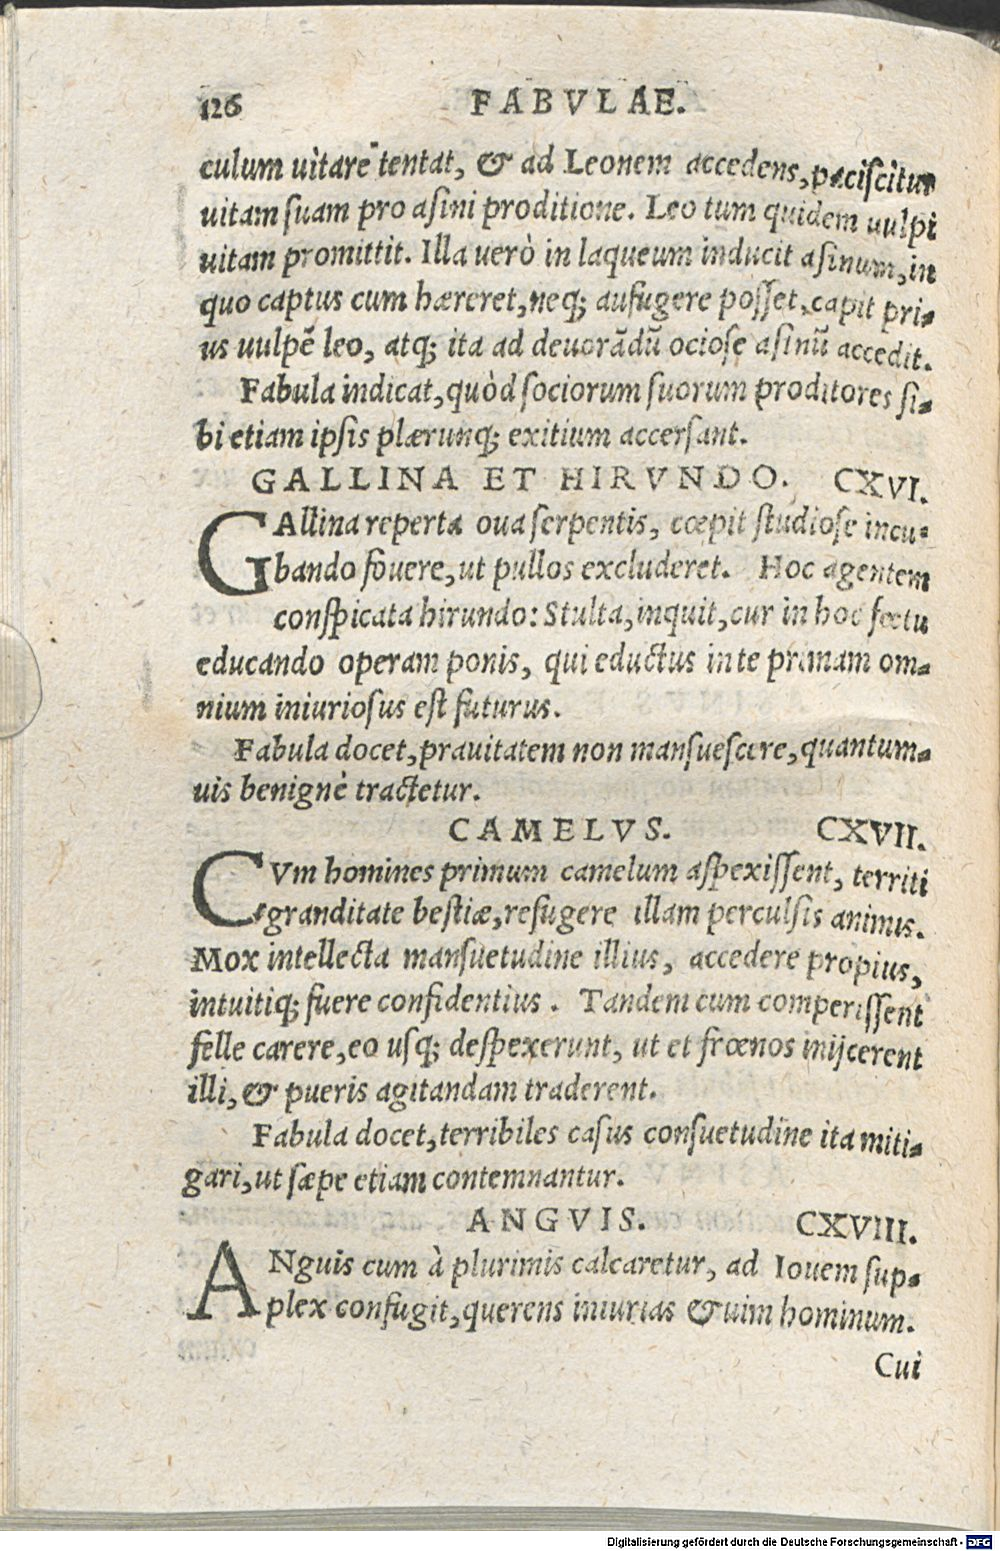 126 FABVLAE.
culum uitare tentat, & ad Leonem accedens, paciſcitur
uitam ſuam pro aſini proditione. Leo tum quidem uulpi
uitam promittit. Illa uerò in laqueum inducit aſinum, in
quo captus cum hæreret, neq; aufugere poſſet, capit pri-
us uulpē leo, atq; ita ad deuorādū ocioſe aſinū accedit.
Fabula indicat, quòd ſociorum ſuorum proditores ſi-
bi etiam ipſis plærunq; exitium accerſant.
GALLINA ET HIRVNDO. CXVI.
GAllina reperta oua ſerpentis, cœpit ſtudioſe incu-
bando fouere, ut pullos excluderet. Hoc agentem
conſpicata hirundo: Stulta, inquit, cur in hoc fœtu
educando operam ponis, qui eductus in te primam om-
nium iniurioſus eſt futurus.
Fabula docet, prauitatem non manſueſcere, quantum-
uis benignè tractetur.
CAMELVS. CXVII.
CVm homines primum camelum aſpexiſſent, territi
granditate beſtiæ, refugere illam perculſis animis.
Mox intellecta manſuetudine illius, accedere propius,
intuitiq; fuere confidentius. Tandem cum comperiſſent
felle carere, eo uſq; deſpexerunt, ut et frœnos inijcerent
illi, & pueris agitandam traderent.
Fabula docet, terribiles caſus conſuetudine ita miti-
gari, ut ſæpe etiam contemnantur.
ANGVIS. CXVIII.
ANguis cum à plurimis calcaretur, ad Iouem ſup-
plex confugit, querens iniurias & uim hominum.
Cui
Digitalisierung gefördert durch die Deutsche Forschungsgemeinschaft - DFG